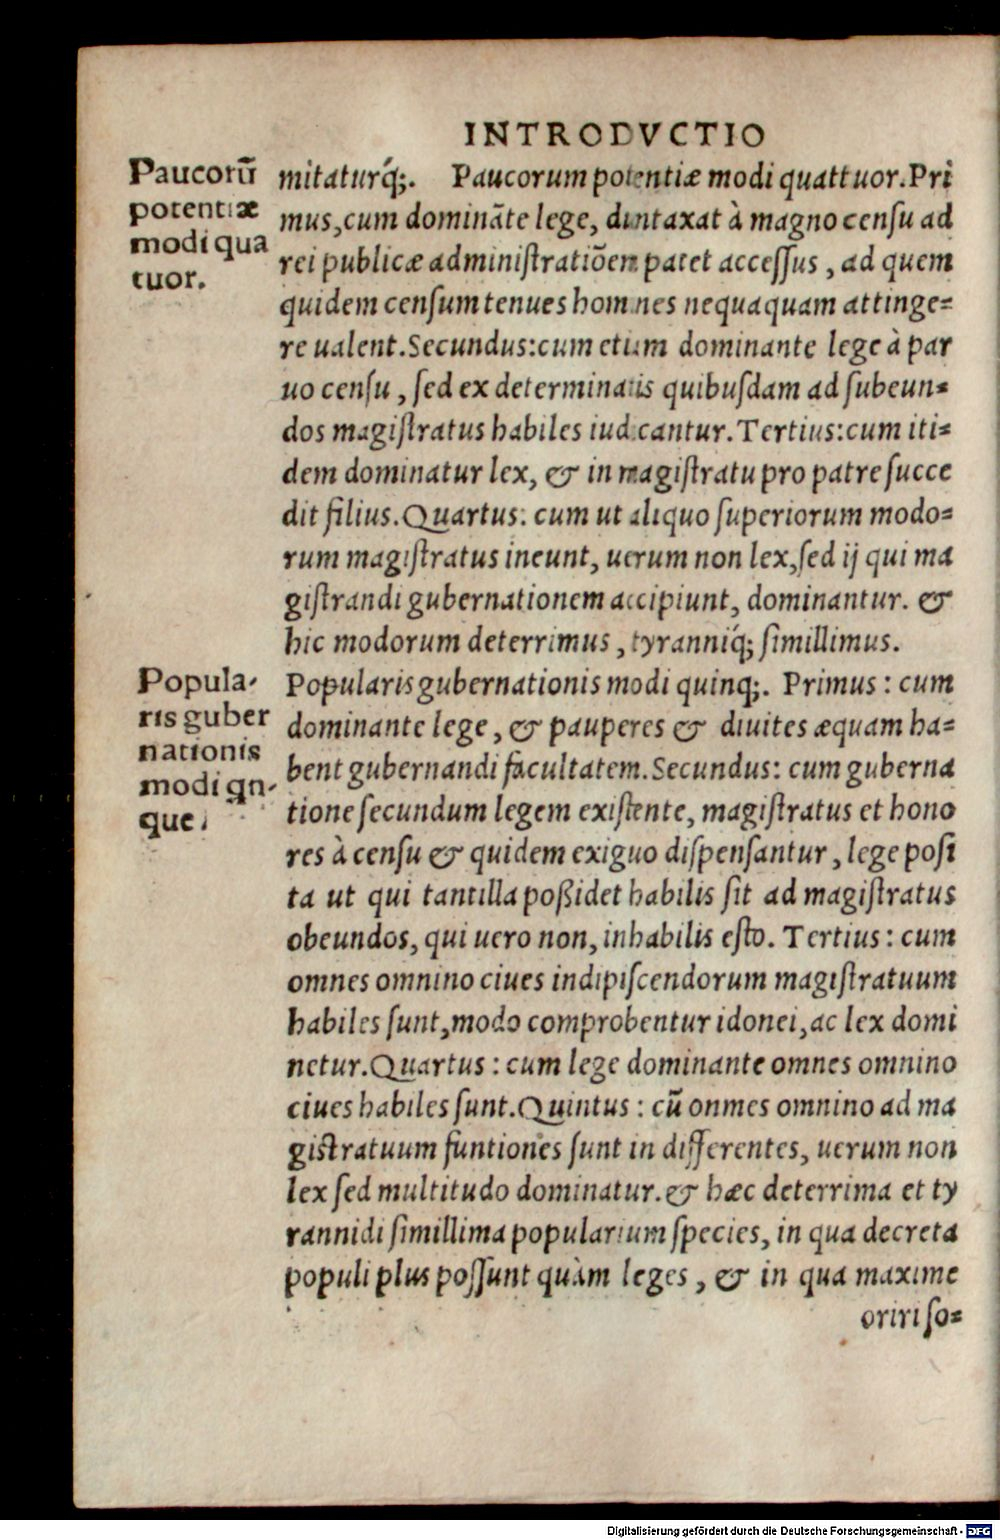 INTRODVCTIO
Paucorũ
potentiæ
modi qua
tuor.
mitaturq́;. Paucorum potentiæ modi quattuor. Pri
mus, cum dominãte lege, duntaxat à magno censu ad
rei publicæ administratiõem patet accessus, ad quem
quidem censum tenues homines nequaquam attinge=
re ualent. Secundus: cum etiam dominante lege à par
uo censu, sed ex determinatis quibusdam ad subeun=
dos magistratus habiles iudicantur. Tertius: cum iti=
dem dominatur lex, & in magistratu pro patre succe
dit filius. Quartus: cum ut aliquo superiorum modo=
rum magistratus ineunt, uerum non lex, sed ij qui ma
gistrandi gubernationem accipiunt, dominantur. &
hic modorum deterrimus, tyranniq́; simillimus.
Popula-
ris guber
nationis
modi qn-
que.
Popularis gubernationis modi quinq;. Primus: cum
dominante lege, & pauperes & diuites æquam ha=
bent gubernandi facultatem. Secundus: cum guberna
tione secundum legem existente, magistratus et hono
res à censu & quidem exiguo dispensantur, lege posi
ta ut qui tantilla poßidet habilis sit ad magistratus
obeundos, qui uero non, inhabilis esto. Tertius: cum
omnes omnino ciues indipiscendorum magistratuum
habiles sunt, modo comprobentur idonei, ac lex domi
netur. Quartus: cum lege dominante omnes omnino
ciues habiles sunt. Quintus: cũ onmes omnino ad ma
gistratuum funtiones sunt in differentes, uerum non
lex sed multitudo dominatur. & hæc deterrima et ty
rannidi simillima popularium species, in qua decreta
populi plus possunt quàm leges, & in qua maxime
oriri so=
Digitalisierung gefördert durch die Deutsche Forschungsgemeinschaft - DFG